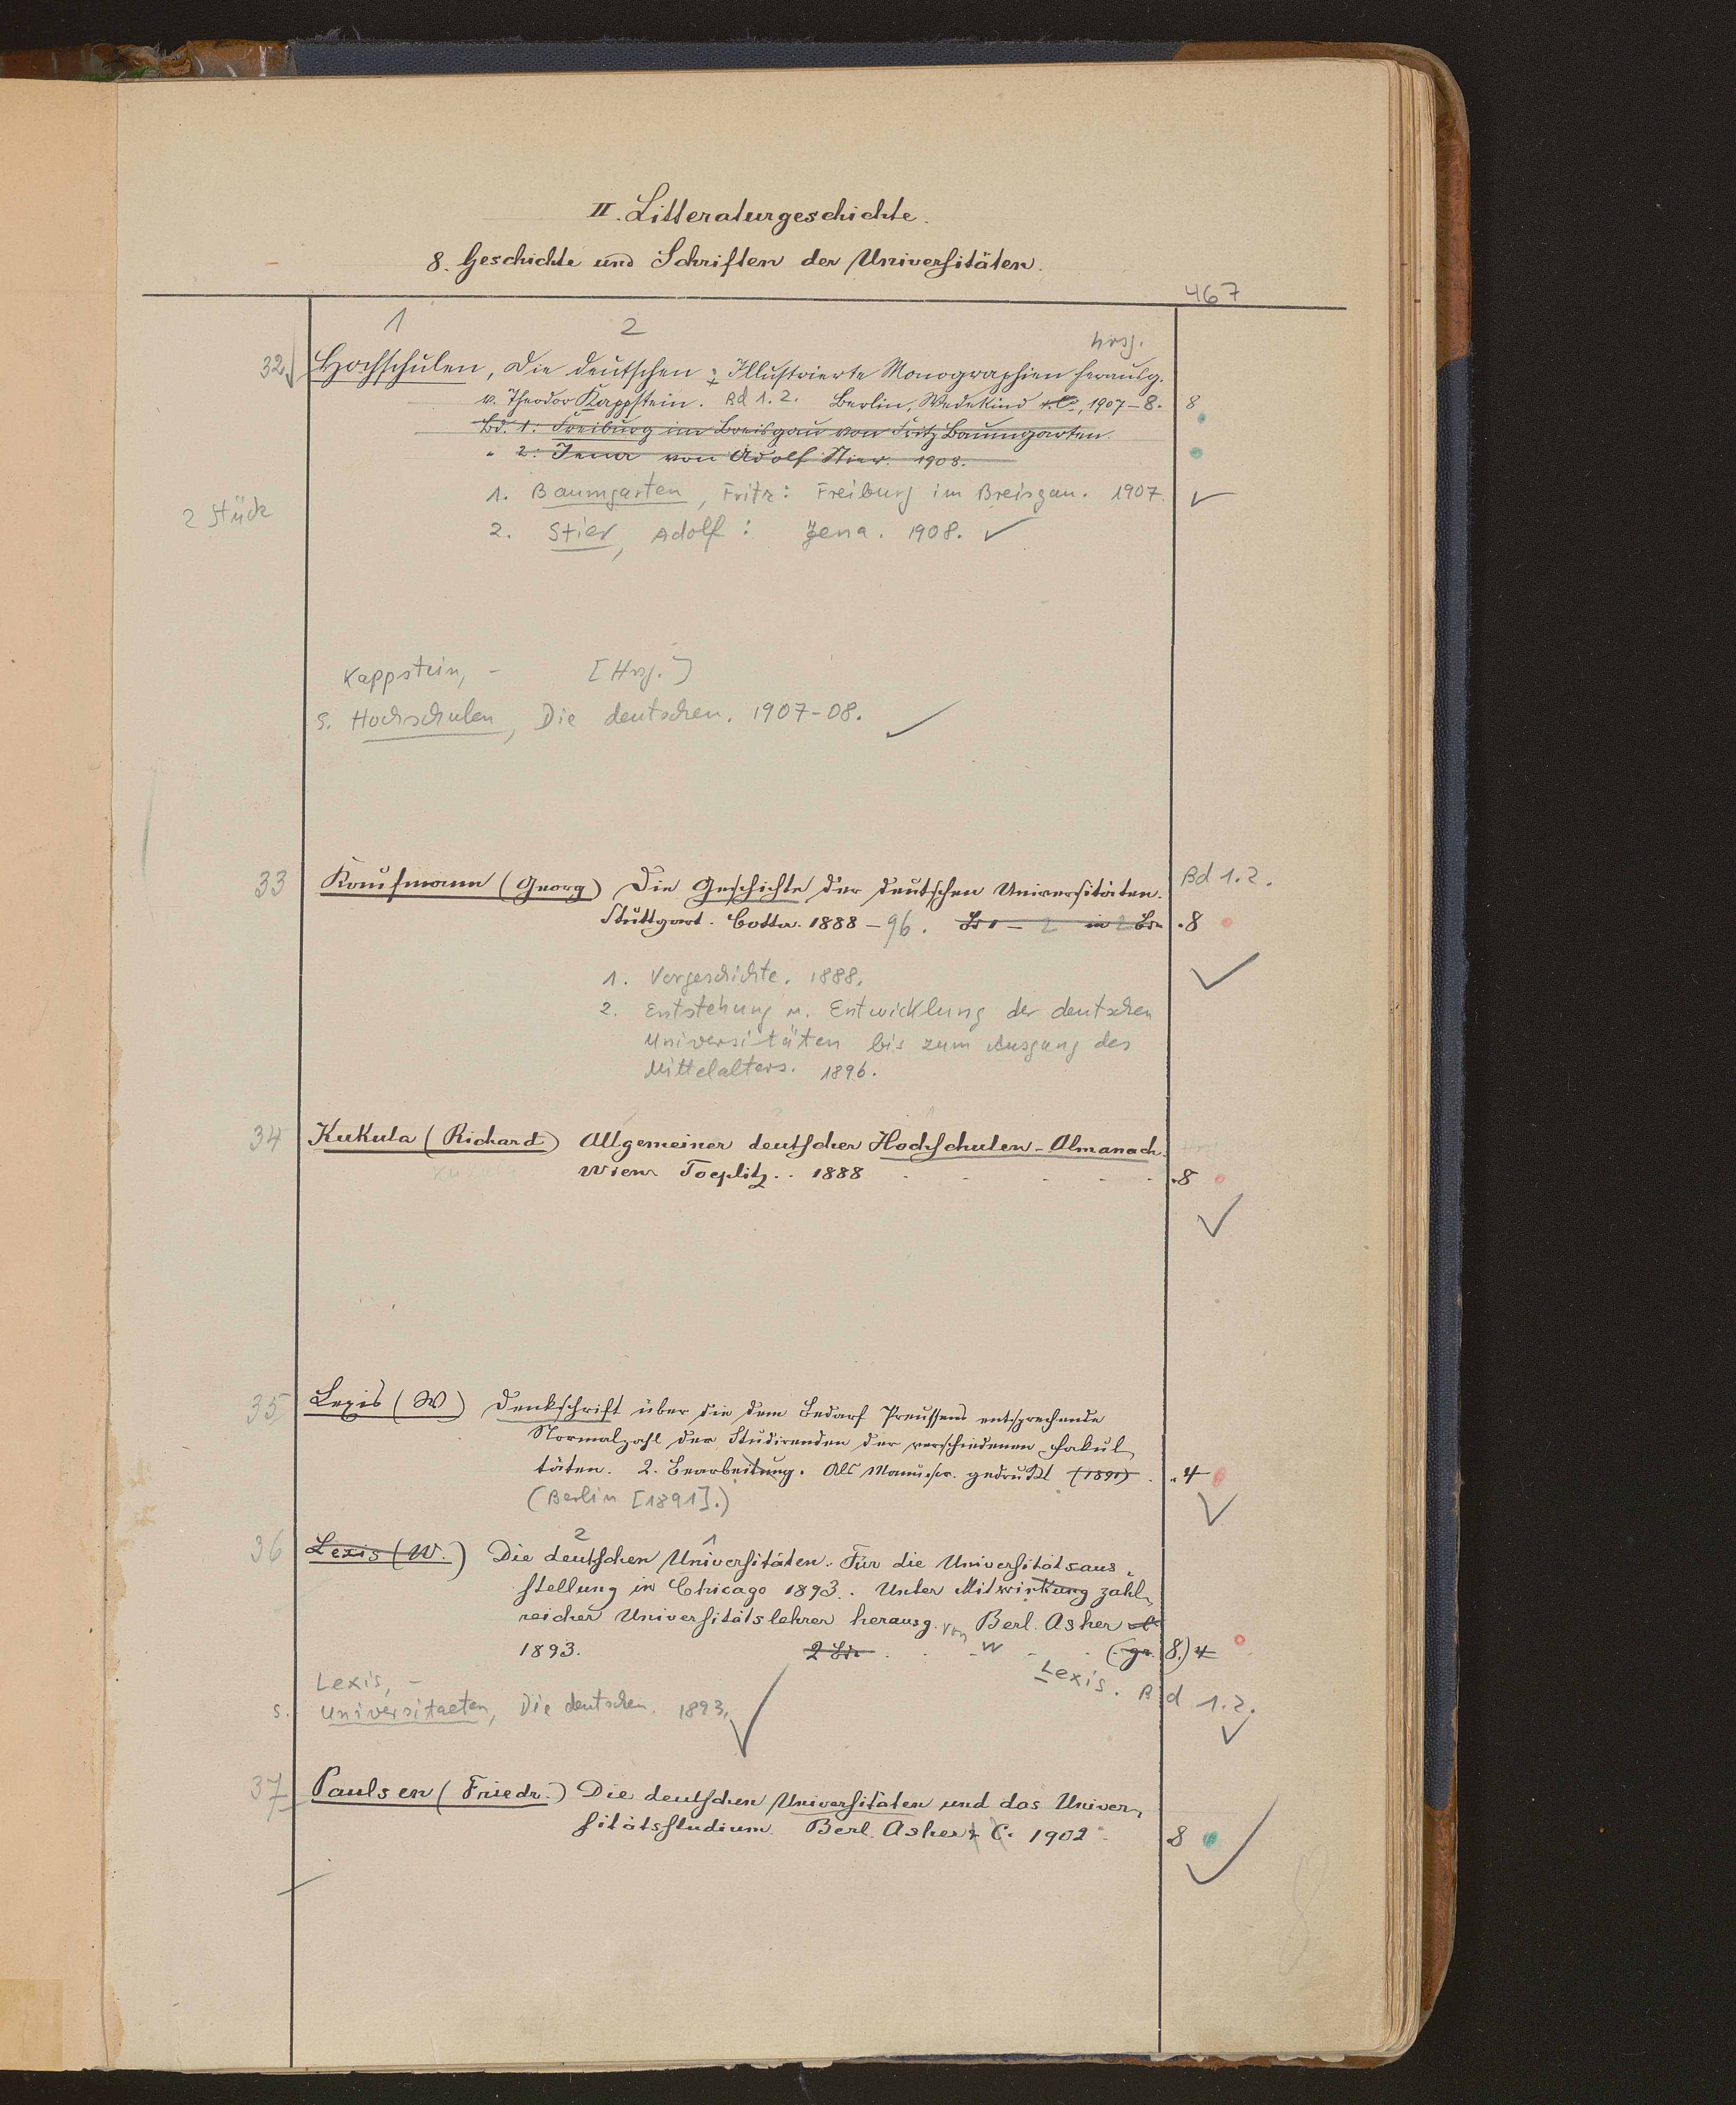 II. Litteraturgeschichte.
8. Geschichte und Schriften der Universitäten.
467
1 2
hrsg.
32. Hochschulen, die deutschen: Illustrierte Monographien herausg.
v. Theodor Kappstein. Bd 1.2. Berlin, Wedekind & Co, 1907-8. 8
Bd. 1: Freiburg im Breisgau von Fritz Baumgarten.
" 2: Jena von Adolf Stier. 1908.
1. Baumgarten, Fritz: Freiburg im Breisgau. 1907.
2 Stück
2. Stier, Adolf: Jena. 1908.
Kappstein, - [Hrsg.]
s. Hochschulen, Die deutschen. 1907-08.
33 Kaufmann (Georg) Die Geschichte der deutschen Universitäten. Bd 1.2.
Stuttgart. Cotta. 1888-96. Bd 1-2 in 2 Bdn 8
1. Vorgeschichte. 1888.
2. Entstehung u. Entwicklung der deutschen
Universitäten bis zum Ausgang des
Mittelalters. 1896.
34 Kukula (Richard) Allgemeiner deutscher Hochschulen-Almanach.
Kukula
Wien Toeplitz.. 1888 8
35 Lexis (W) Denkschrift über die dem Bedarf Preussens entsprechende
Normalzahl der Studirenden der verschiedenen Fakul
täten. 2. Bearbeitung. Als Manuscr. gedruckt (1891). 4
(Berlin [1891].)
2 1
36 Lexis (W.) Die deutschen Universitäten. Für die Universitätsaus
stellung in Chicago 1893. Unter Mitwirkung zahl
reicher Universitätslehrer herausg. von Berl. Asher
1893. 2 Bde W (gr. 8.) 4
Lexis. Bd 1.2.
Lexis, -
s. Universitaeten, Die deutschen. 1893.
37 Paulsen (Friedr.) Die deutschen Universitäten und das Univer
sitätsstudium. Berl. Asher & C. 1902 8